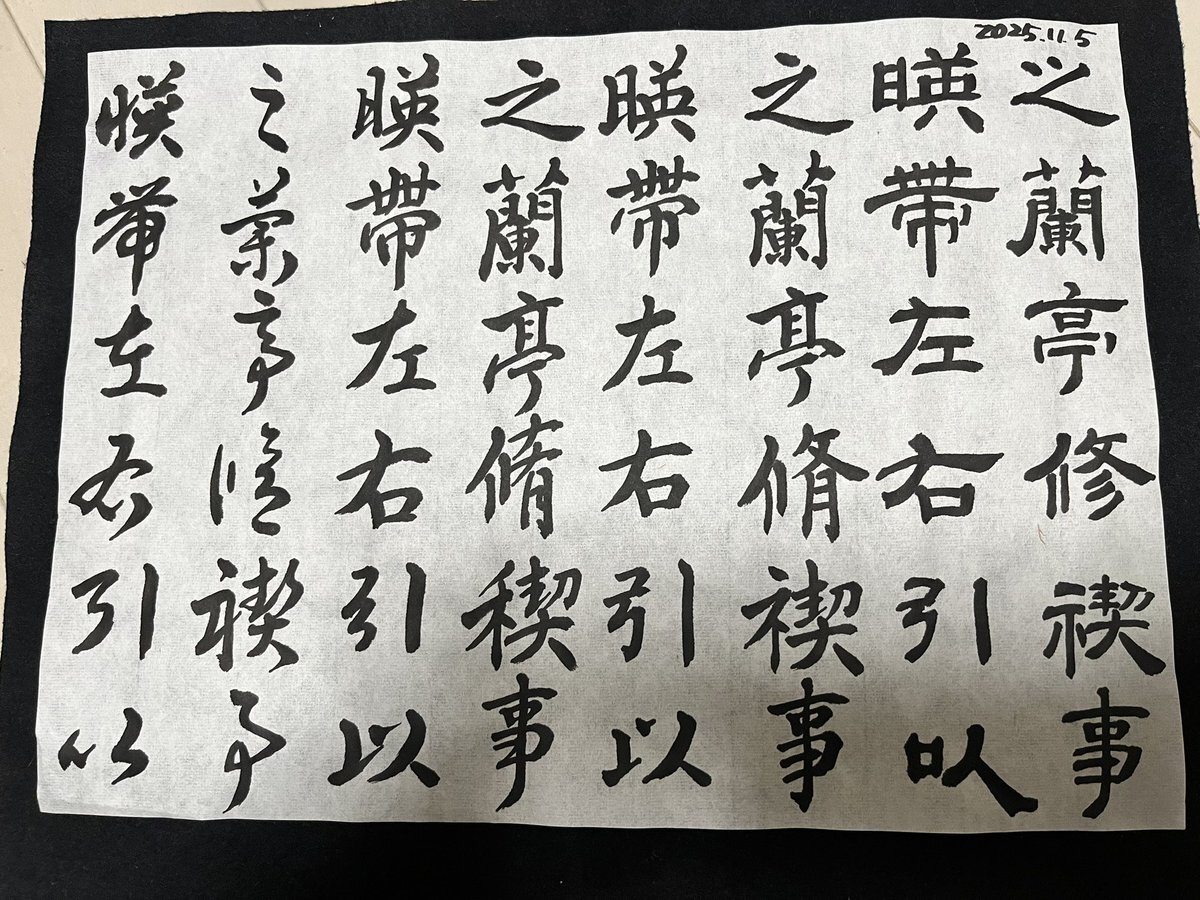 2025.11.5
之蘭亭修禊事
暎帶左右引以
之蘭亭脩禊事
暎帶左右引以
之蘭亭脩稧事
暎帶左右引以
之蘭亭脩禊事
暎帶左右引以